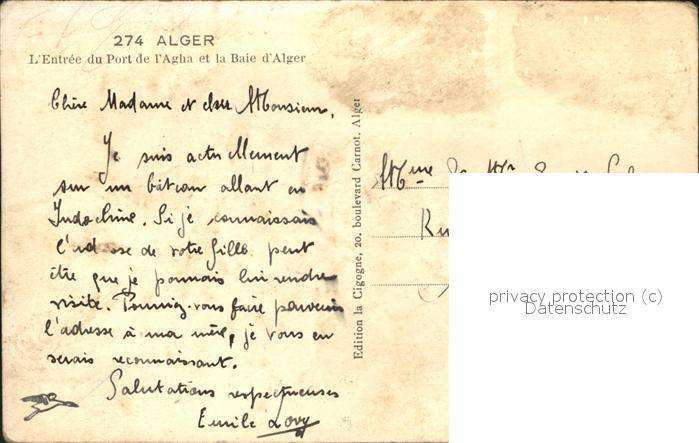 274 ALGER
L'Entrée du Port de l'Agha et la Baie d'Alger
Chère Madame et cher Monsieur,
Je suis actuellement
sur un bateau allant en
Indochine. Si je connaissais
l'adresse de votre fille peut
être que je pourrais lui rendre
visite. Pourriez-vous faire parvenir
l'adresse à ma mère, je vous en
serais reconnaissant.
Salutations respectueuses
Emile
Edition la Cigogne, 20, boulevard Carnot, Alger
Mme
privacy protection (c)
Datenschutz